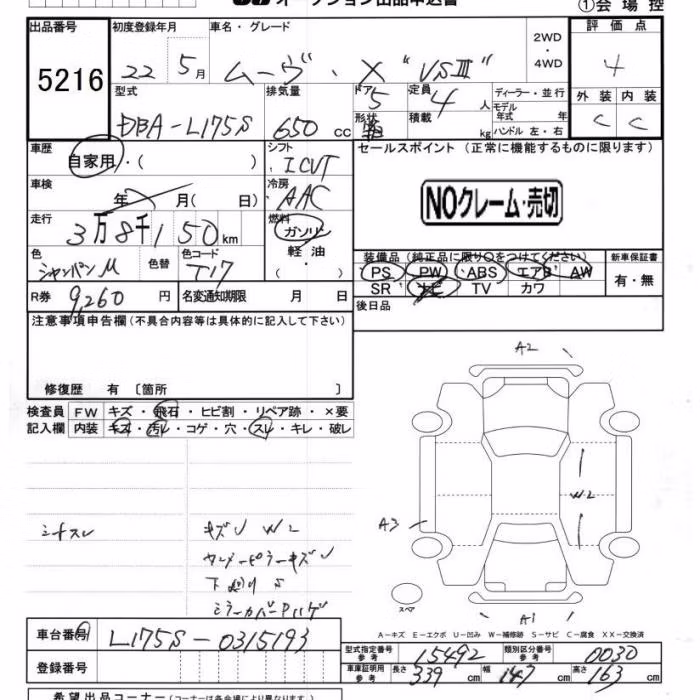 オークション出品申込書
①会場控
出品番号
5216
初度登録年月
22 5月
車名・グレード
ムーヴ・X "VSⅢ"
2WD
・
4WD
評価点
4
型式
DBA-L175S
排気量
650 cc
ドア
5
形状
定員
4 人
積載
kg
ディーラー・並行
モデル年式 年式
ハンドル 左・右
外装 内装
C C
車歴
自家用・( )
シフト
ICVT
セールスポイント (正常に機能するものに限ります)
車検
年 月( 日)
冷房
AAC
NOクレーム・売切
走行
3万8千150km
燃料
ガソリン
軽油
・( )
色
シャンパンM
色替
色コード
T17
装備品 (純正品に限り○をつけてください)
PS PW ABS エアB AW
SR ナビ TV カワ
新車保証書
有・無
R券 9,260円
名変通知期限 月 日
後日品
注意事項申告欄(不具合内容等は具体的に記入して下さい)
修復歴 有 〔箇所 〕
検査員
記入欄
FW キズ・飛石・ヒビ割・リペア跡・×要
内装 キズ・汚レ・コゲ・穴・スレ・キレ・破レ
A2
W2
A3
A1
スペア
シートスレ
キズU W2
ミラーカバー
A-キズ E-エクボ U-凹み W-補修跡 S-サビ C-腐食 XX-交換済
車台番号
L175S-0315193
登録番号
型式指定番号
参考
15492
類別区分番号
参考
0030
車庫証明用
参考
長さ 339 cm
幅 147 cm
高さ 163 cm
希望出品コーナー(コーナーは各会場により異なります。)